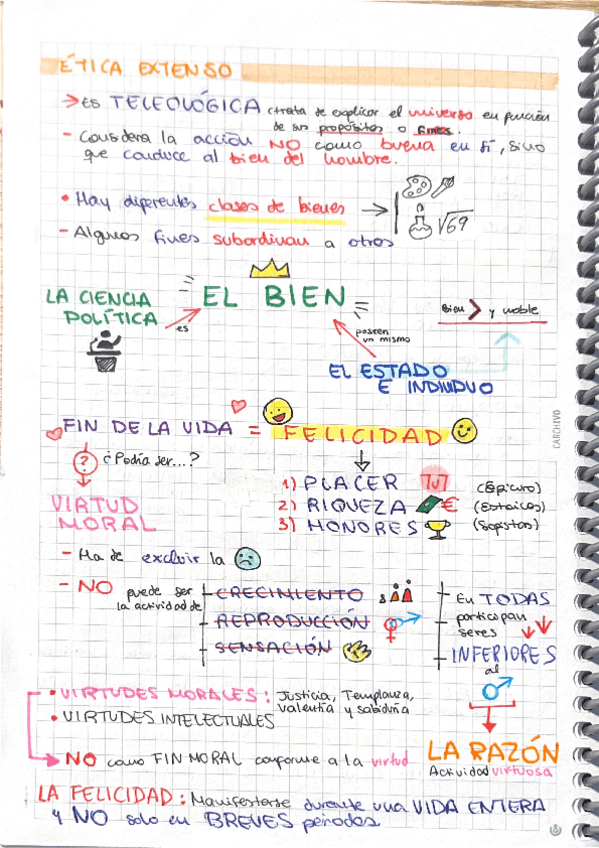 ÉTICA EXTENSO
→ ES TELEOLÓGICA (trata de explicar el universo en función
de sus propósitos o fines.
- Considera la acción NO como buena en sí, sino
que conduce al bien del hombre.
• Hay diferentes clases de bienes → √69
- Algunos fines subordinan a otros
LA CIENCIA
POLÍTICA
es
EL BIEN
Bien > y noble
poseen
un mismo
EL ESTADO
E INDIVIDUO
FIN DE LA VIDA = FELICIDAD
? ¿Podría ser...?
VIRTUD
MORAL
1) PLACER (Epicuro)
2) RIQUEZA € (Estoicos)
3) HONORES (Sofistas)
- Ha de excluir la
- NO puede ser
la actividad de
CRECIMIENTO
REPRODUCCIÓN
SENSACIÓN
- En TODAS
participan
seres
- INFERIORES
al
LA RAZÓN
Actividad virtuosa
• VIRTUDES MORALES: Justicia, Templanza,
valentía y sabiduría
• VIRTUDES INTELECTUALES
NO como FIN MORAL conforme a la virtud
LA FELICIDAD: Manifestarse durante una VIDA ENTERA
y NO solo en BREVES periodos
CARCHIVO